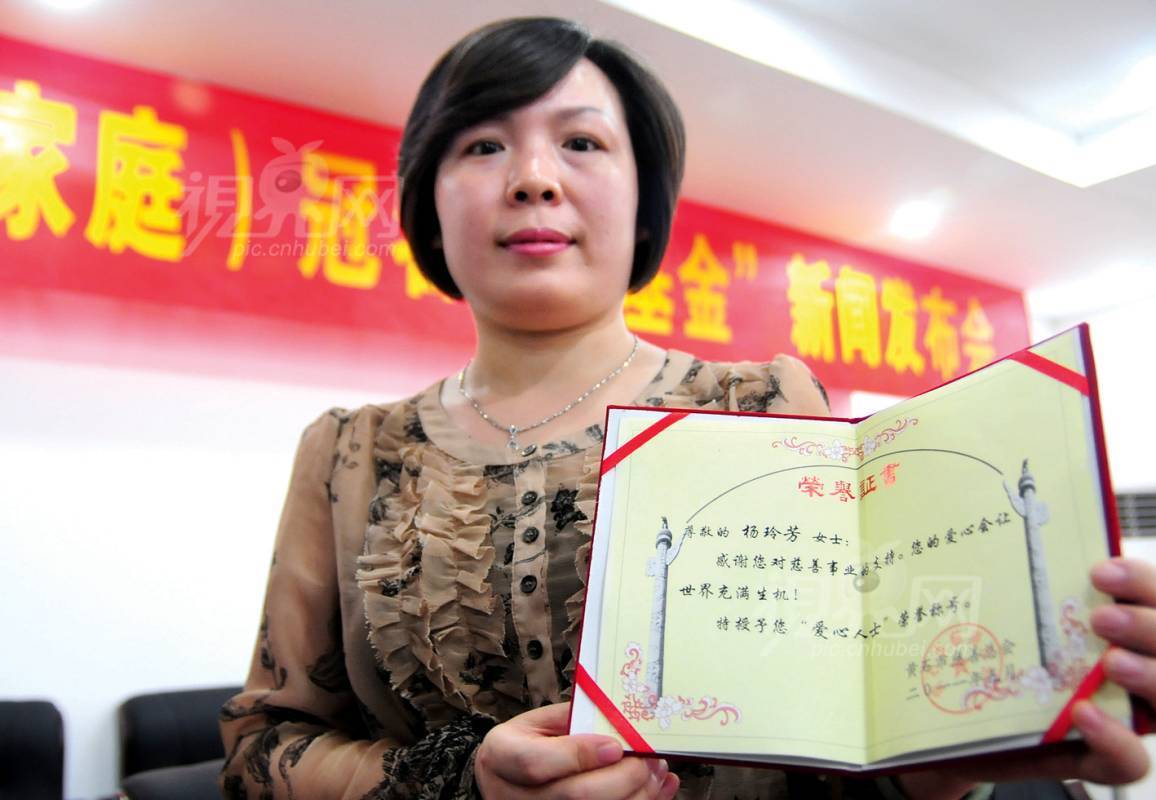 家庭）冠
基金”新闻发布会
視界网
pic.cnhubei.com
榮譽証書
尊敬的 杨玲芳 女士：
感谢您对慈善事业的支持。您的爱心会让
世界充满生机！
特授予您“爱心人士”荣誉称号。
視界网
pic.cnhubei.com